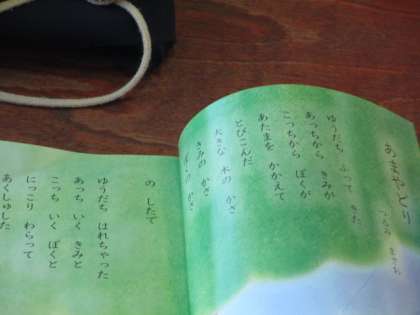 あまやどり
ゆうだち ふって きた
あっちから きみが
こっちから ぼくが
あたまを かかえて
とびこんだ
大きな 木の かさ
きみの かさ
かさ
の したで
ゆうだち はれちゃった
あっち いく きみと
こっち いく ぼくと
にっこり わらって
あくしゅした